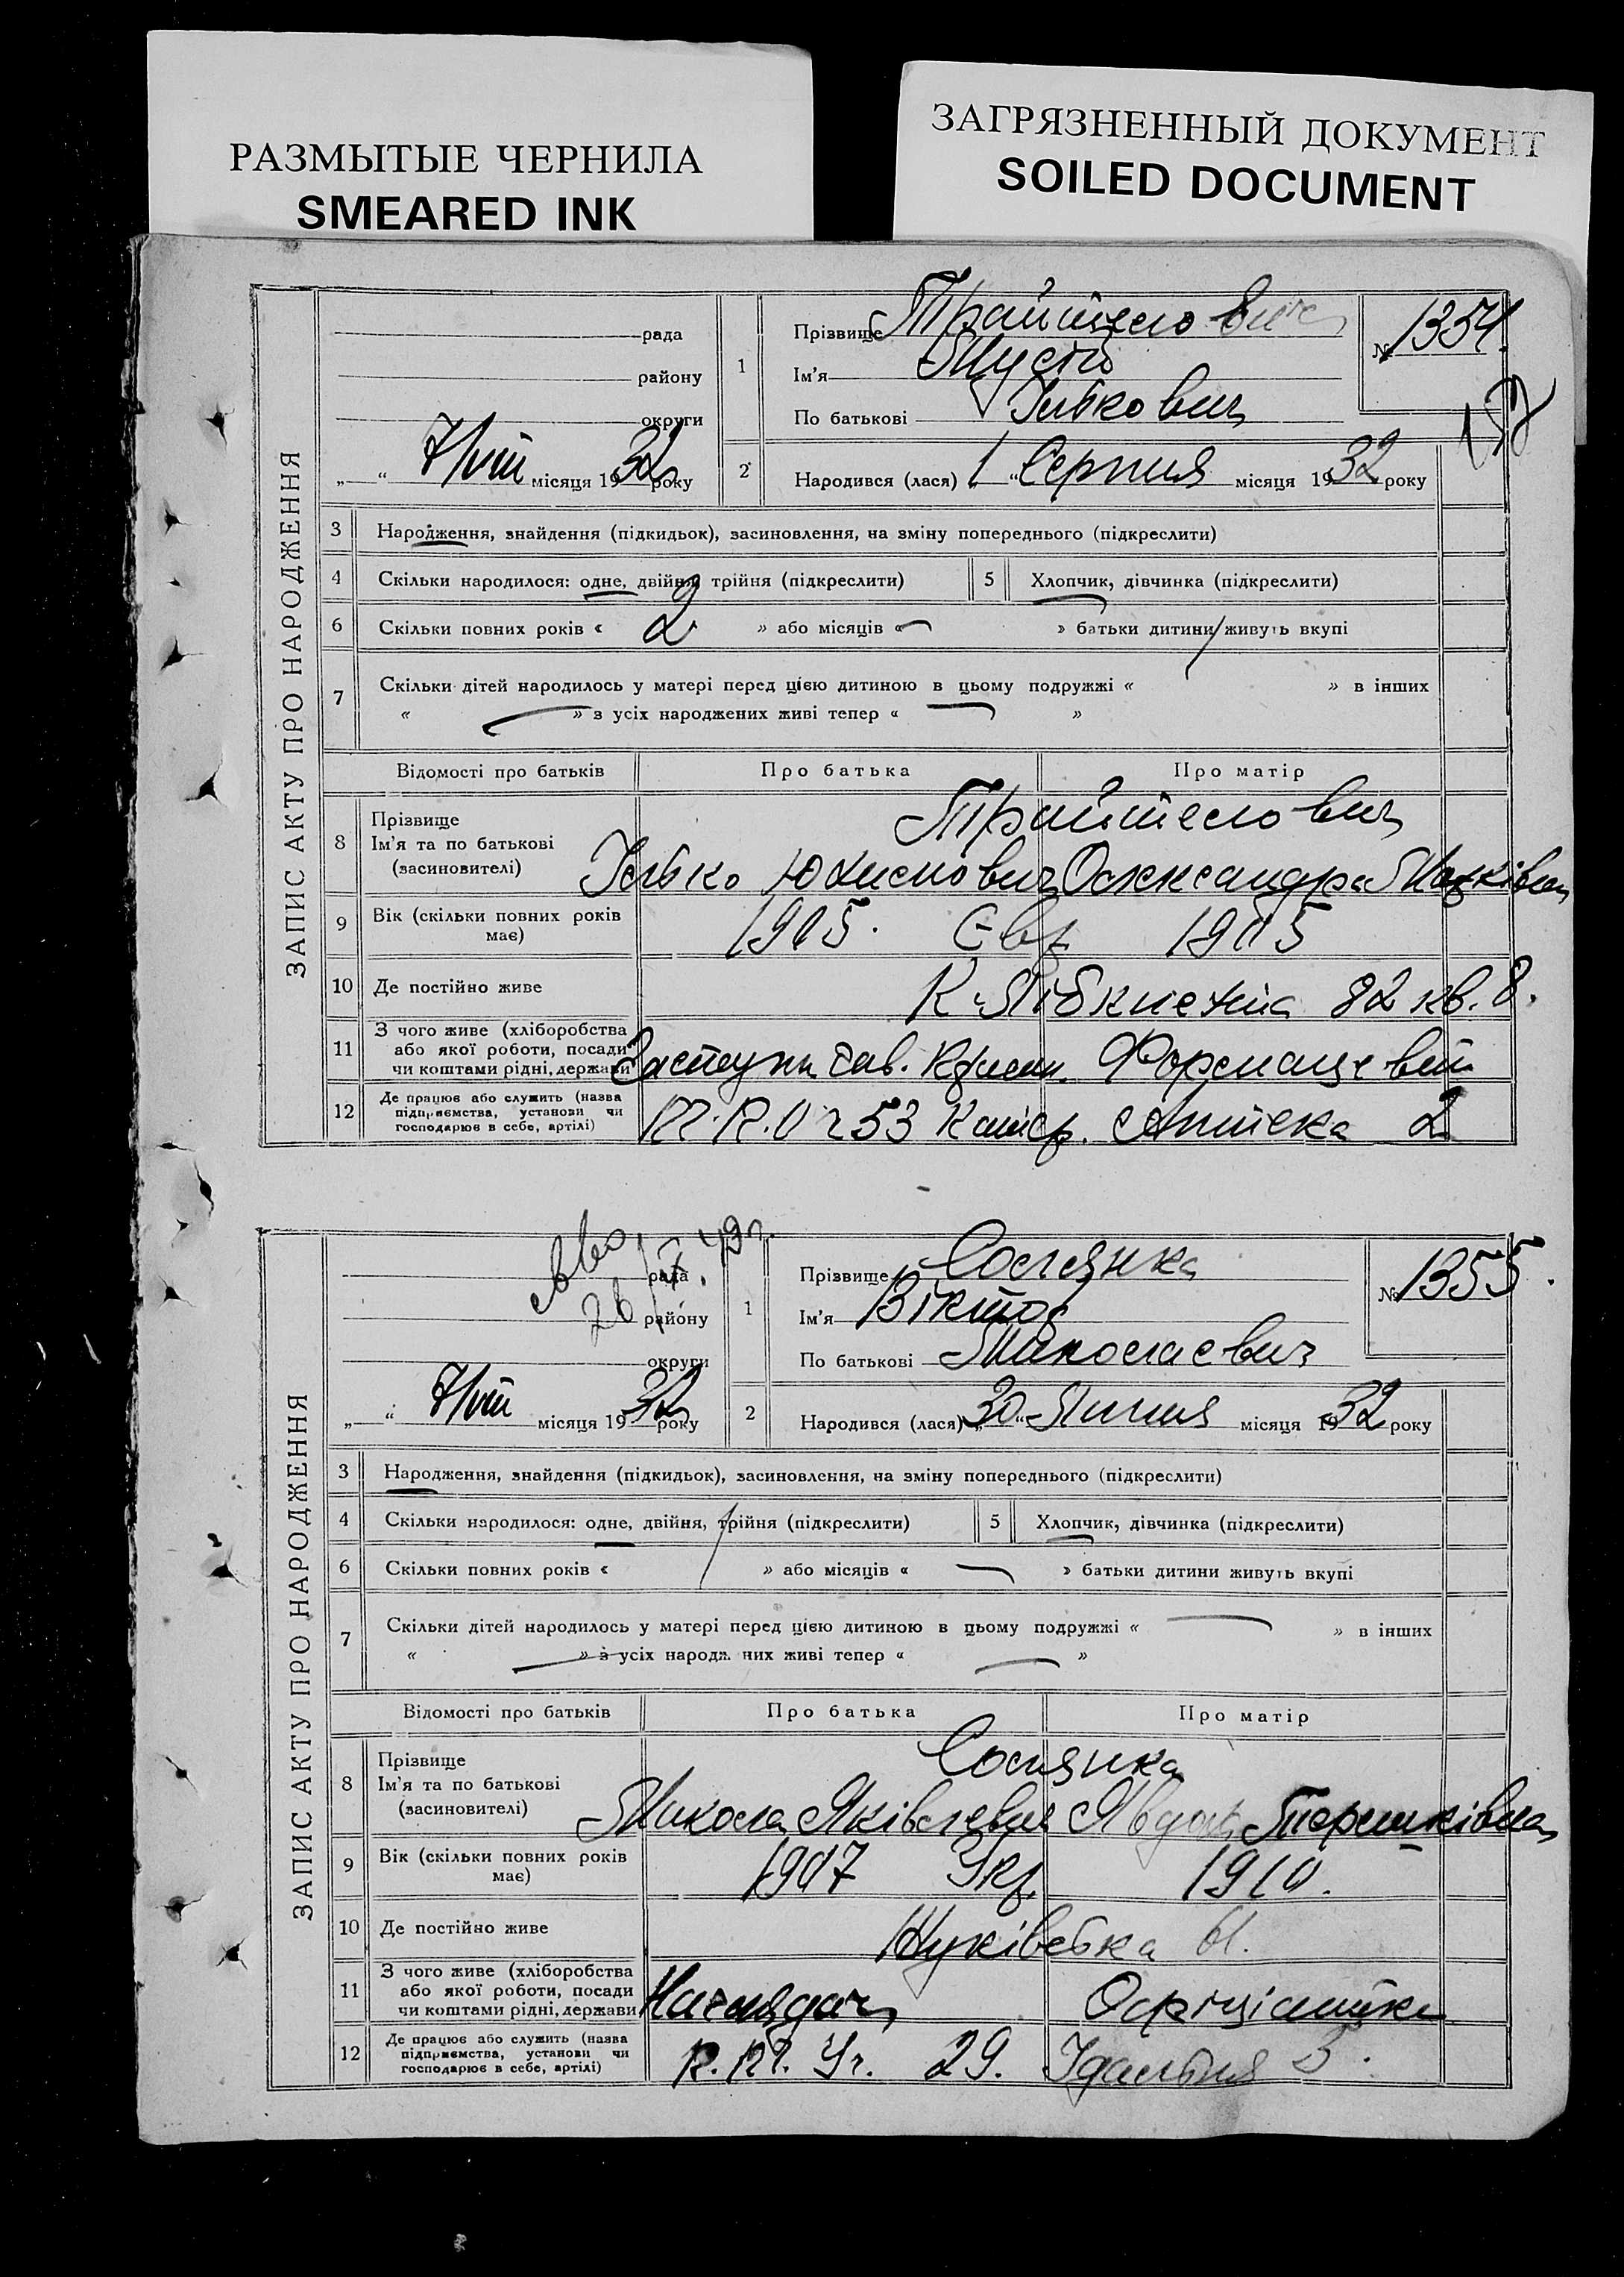 РАЗМЫТЫЕ ЧЕРНИЛА
SMEARED INK
ЗАГРЯЗНЕННЫЙ ДОКУМЕНТ
SOILED DOCUMENT
ЗАПИС АКТУ ПРО НАРОДЖЕННЯ
рада
району
округи
„ “ 7/VIII місяця 1932 року
1
Прізвище
Ім'я
По батькові
№ 1354.
2
Народився (лася) „ 1 “ Серпня місяця 1932 року
3 Народження, знайдення (підкидьок), засиновлення, на зміну попереднього (підкреслити)
4 Скільки народилося: одне, двійня, трійня (підкреслити) 5 Хлопчик, дівчинка (підкреслити)
6 Скільки повних років « 2 » або місяців « » батьки дитини живуть вкупі
7 Скільки дітей народилось у матері перед цією дитиною в цьому подружжі « » в інших
« » з усіх народжених живі тепер « »
Відомості про батьків Про батька Про матір
8 Прізвище
Ім'я та по батькові
(засиновителі)
9 Вік (скільки повних років має) 1905. Євр. 1905
10 Де постійно живе К. Лібкнехта 82 кв. 8.
11 З чого живе (хліборобства або якої роботи, посади чи коштами рідні, держави
12 Де працює або служить (назва підприємства, установи чи господарює в себе, артілі) 53 Аптека 2
ЗАПИС АКТУ ПРО НАРОДЖЕННЯ
рада
району
округи
„ “ 7/VIII місяця 1932 року
1
Прізвище Солянка
Ім'я Віктор
По батькові Миколаєвич
№ 1355.
2
Народився (лася) „ 30 “ Липня місяця 1932 року
3 Народження, знайдення (підкидьок), засиновлення, на зміну попереднього (підкреслити)
4 Скільки народилося: одне, двійня, трійня (підкреслити) 5 Хлопчик, дівчинка (підкреслити)
6 Скільки повних років « » або місяців « » батьки дитини живуть вкупі
7 Скільки дітей народилось у матері перед цією дитиною в цьому подружжі « » в інших
« » з усіх народж них живі тепер « »
Відомості про батьків Про батька Про матір
8 Прізвище Солянка
Ім'я та по батькові Микола Яківлевич
(засиновителі)
9 Вік (скільки повних років має) 1907 Укр. 1910.
10 Де постійно живе
11 З чого живе (хліборобства або якої роботи, посади чи коштами рідні, держави Наглядач Офіціантка
12 Де працює або служить (назва підприємства, установи чи господарює в себе, артілі) 29. Їдальня 3.